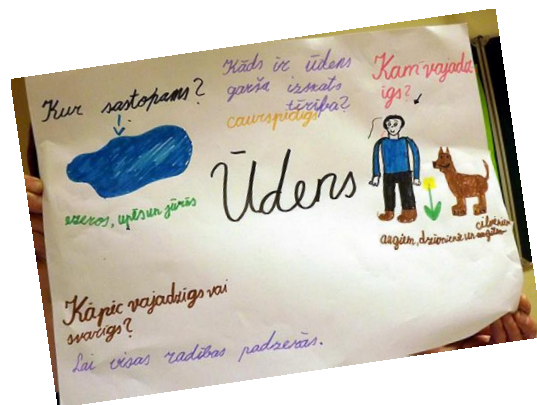 Kur sastopams?
ezeros, upēs un jūrās
Kāds ir ūdens
garša izskats
tīrība?
caurspīdīgs
Kam vajadz-
īgs?
Ūdens
cilvēkiem
augiem, dzīvniekiem un
Kāpēc vajadzīgs vai
svarīgs?
Lai visas radības padzerās.